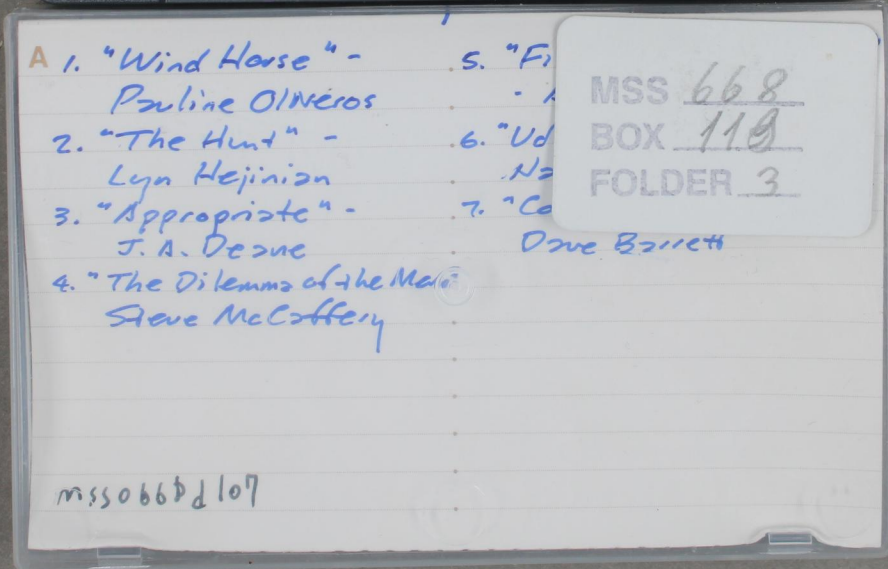 A 1. "Wind Horse" -
Pauline Oliveros
2. "The Hunt" -
Lyn Hejinian
3. "Appropriate" -
J. A. Deane
4. "The Dilemma of the
Steve McCaffery
5. "Fi
-
6. "Ud
Na
7. "Co
Dave Barrett
MSS 668
BOX 119
FOLDER 3
mss0668d107